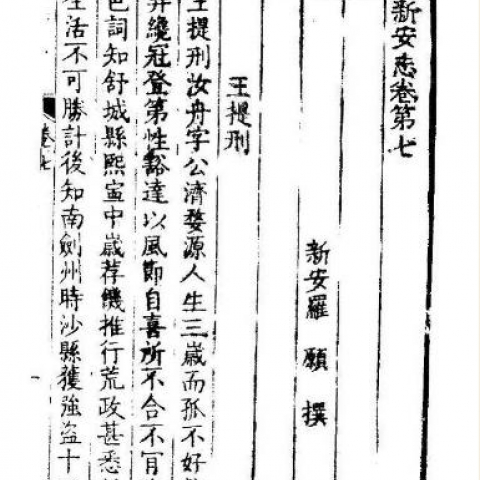 新安志卷第七
新安羅願撰
王提刑
王提刑汝舟字公濟婺源人生三歲而孤不好
弁纔冠登第性豁達以風節自喜所不合不肎
色詞知舒城縣熙寧中歲荐饑推行荒政甚悉
生活不可勝計後知南劍州時沙縣獲強盜十
卷七